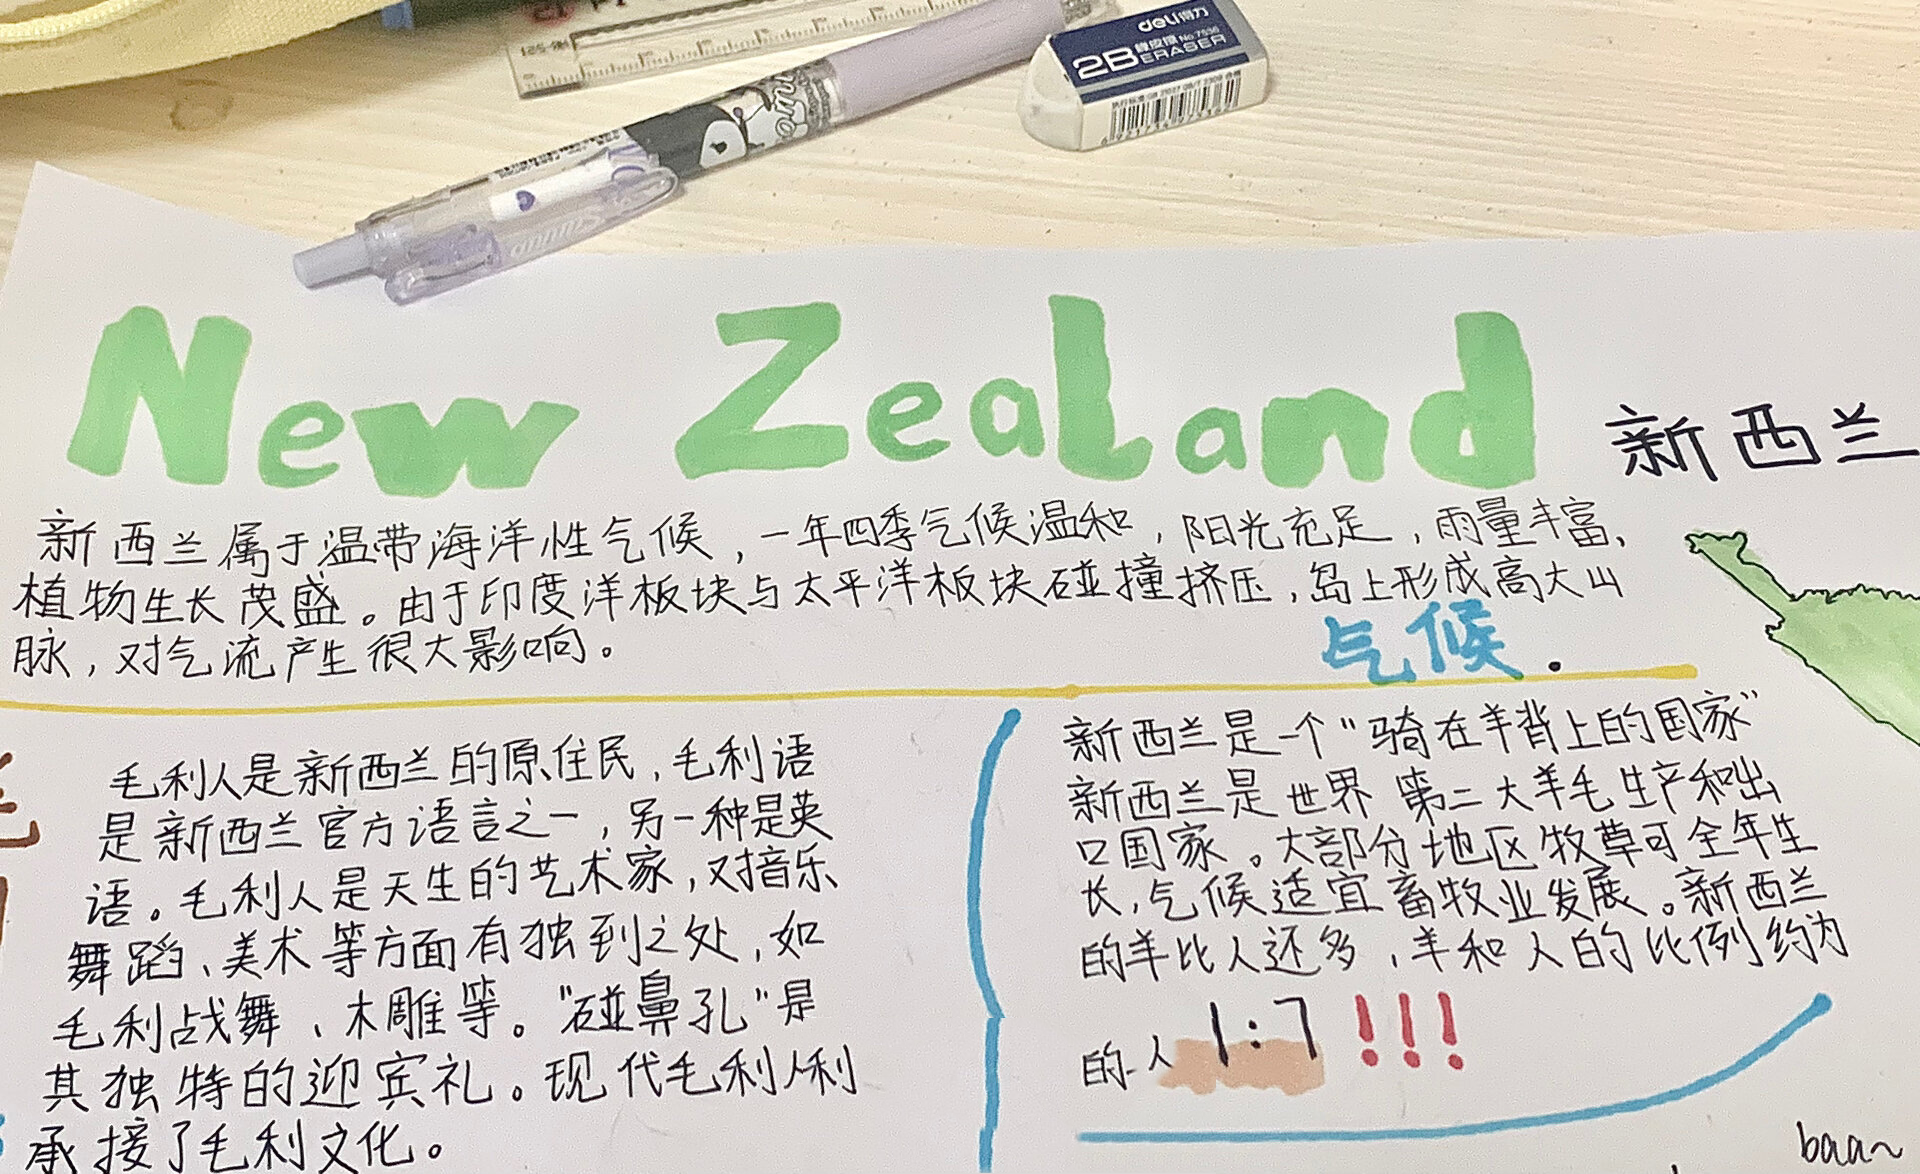 deli得力
2B 橡皮擦 No.7536
ERASER
New ZeaLand
新西兰
新西兰属于温带海洋性气候，一年四季气候温和，阳光充足，雨量丰富、
植物生长茂盛。由于印度洋板块与太平洋板块碰撞挤压，岛上形成高大山
脉，对气流产生很大影响。
气候.
毛利人是新西兰的原住民，毛利语
是新西兰官方语言之一，另一种是英
语。毛利人是天生的艺术家，对音乐
舞蹈、美术等方面有独到之处，如
毛利战舞、木雕等。“碰鼻孔”是
其独特的迎宾礼。现代毛利人利
承接了毛利文化。
新西兰是一个“骑在羊背上的国家”
新西兰是世界第二大羊毛生产和出
口国家。大部分地区牧草可全年生
长，气候适宜畜牧业发展。新西兰
的羊比人还多，羊和人的比例约为
的人 1:7 !!!
baa~